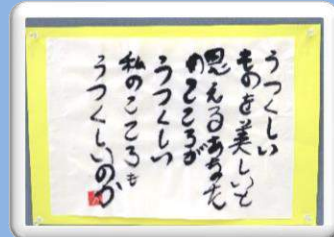 うつくしい
ものを美しいと
思えるあなた
のこころが
うつくしい
私のこころも
うつくしいのか